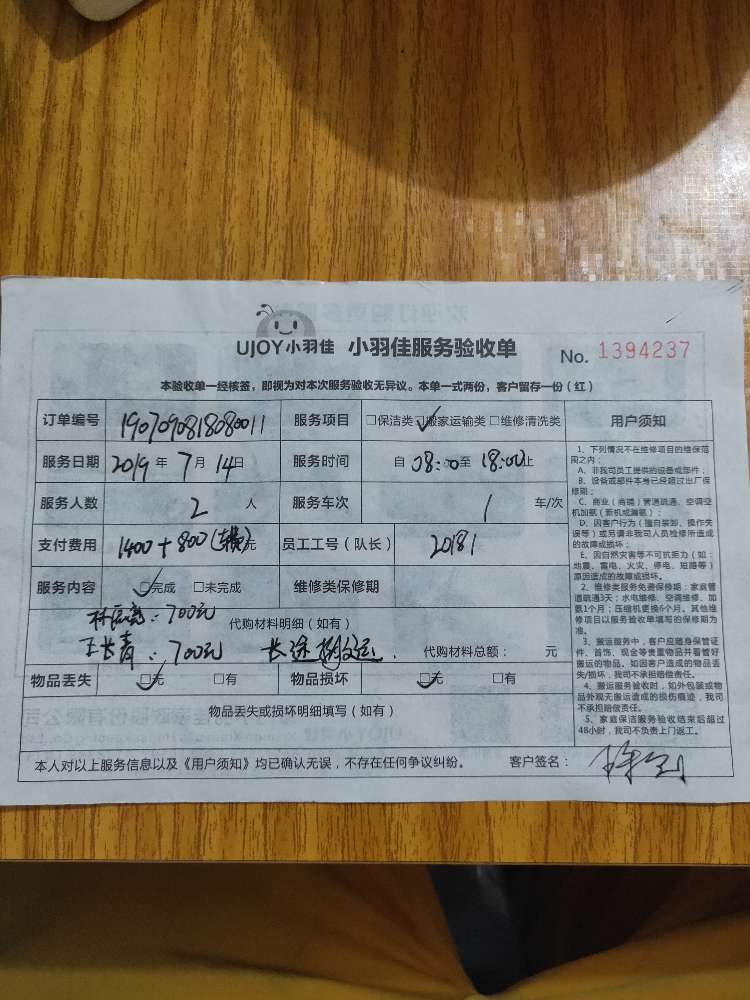 UJOY小羽佳 小羽佳服务验收单 No. 1394237
本验收单一经核签，即视为对本次服务验收无异议。本单一式两份，客户留存一份（红）
订单编号 1907090818080011 服务项目 □保洁类 □搬家运输类 □维修清洗类
服务日期 2019 年 7 月 14 日 服务时间 自 08:00 至 18:00 止
服务人数 2 人 服务车次 1 车/次
支付费用 1400+800 元 员工工号（队长） 20181
服务内容 □完成 □未完成 维修类保修期
700元 代购材料明细（如有）
王长青：700元 长途搬运 代购材料总额： 元
物品丢失 □无 □有 物品损坏 □无 □有
物品丢失或损坏明细填写（如有）
本人对以上服务信息以及《用户须知》均已确认无误，不存在任何争议纠纷。 客户签名：
用户须知
1、下列情况不在维修项目的维保范
围之内：
A、非我司员工提供的设备或部件；
B、设备或部件本身已经超过出厂保
修期；
C、商业（商铺）管道疏通、空调空
机加氨（新机或漏氨）；
D、因客户行为（擅自装卸、操作失
误等）或另请非我司人员检修所造成
的故障或损坏；
E、因自然灾害等不可抗拒力（如：
地震、雷电、火灾、停电、短路等）
原因造成的故障或损坏。
2、维修类服务免费保修期：家庭管
道疏通3天；水电维修、空调维修、加
氨1个月；压缩机更换6个月。其他维
修项目以服务验收单填写的保修期为
准。
3、搬运服务中，客户应随身保管证
件、首饰、现金等贵重物品并看管好
搬运的物品。如因客户造成的物品丢
失/损坏，我司不承担赔偿责任。
4、搬运服务验收时，如外包装或物
品外观无搬运造成的损伤痕迹，我司
不承担赔偿责任。
5、家庭保洁服务验收结束后超过
48小时，我司不负责上门返工。